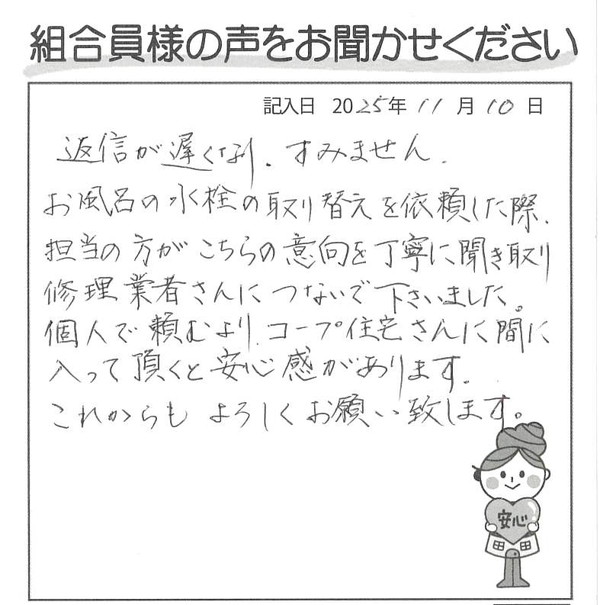 組合員様の声をお聞かせください
記入日 2025年 11月 10日
返信が遅くなり、すみません。
お風呂の水栓の取り替えを依頼した際、
担当の方がこちらの意向を丁寧に聞き取り
修理業者さんにつないで下さいました。
個人で頼むより、コープ住宅さんに間に
入って頂くと安心感があります。
これからもよろしくお願い致します。
安心